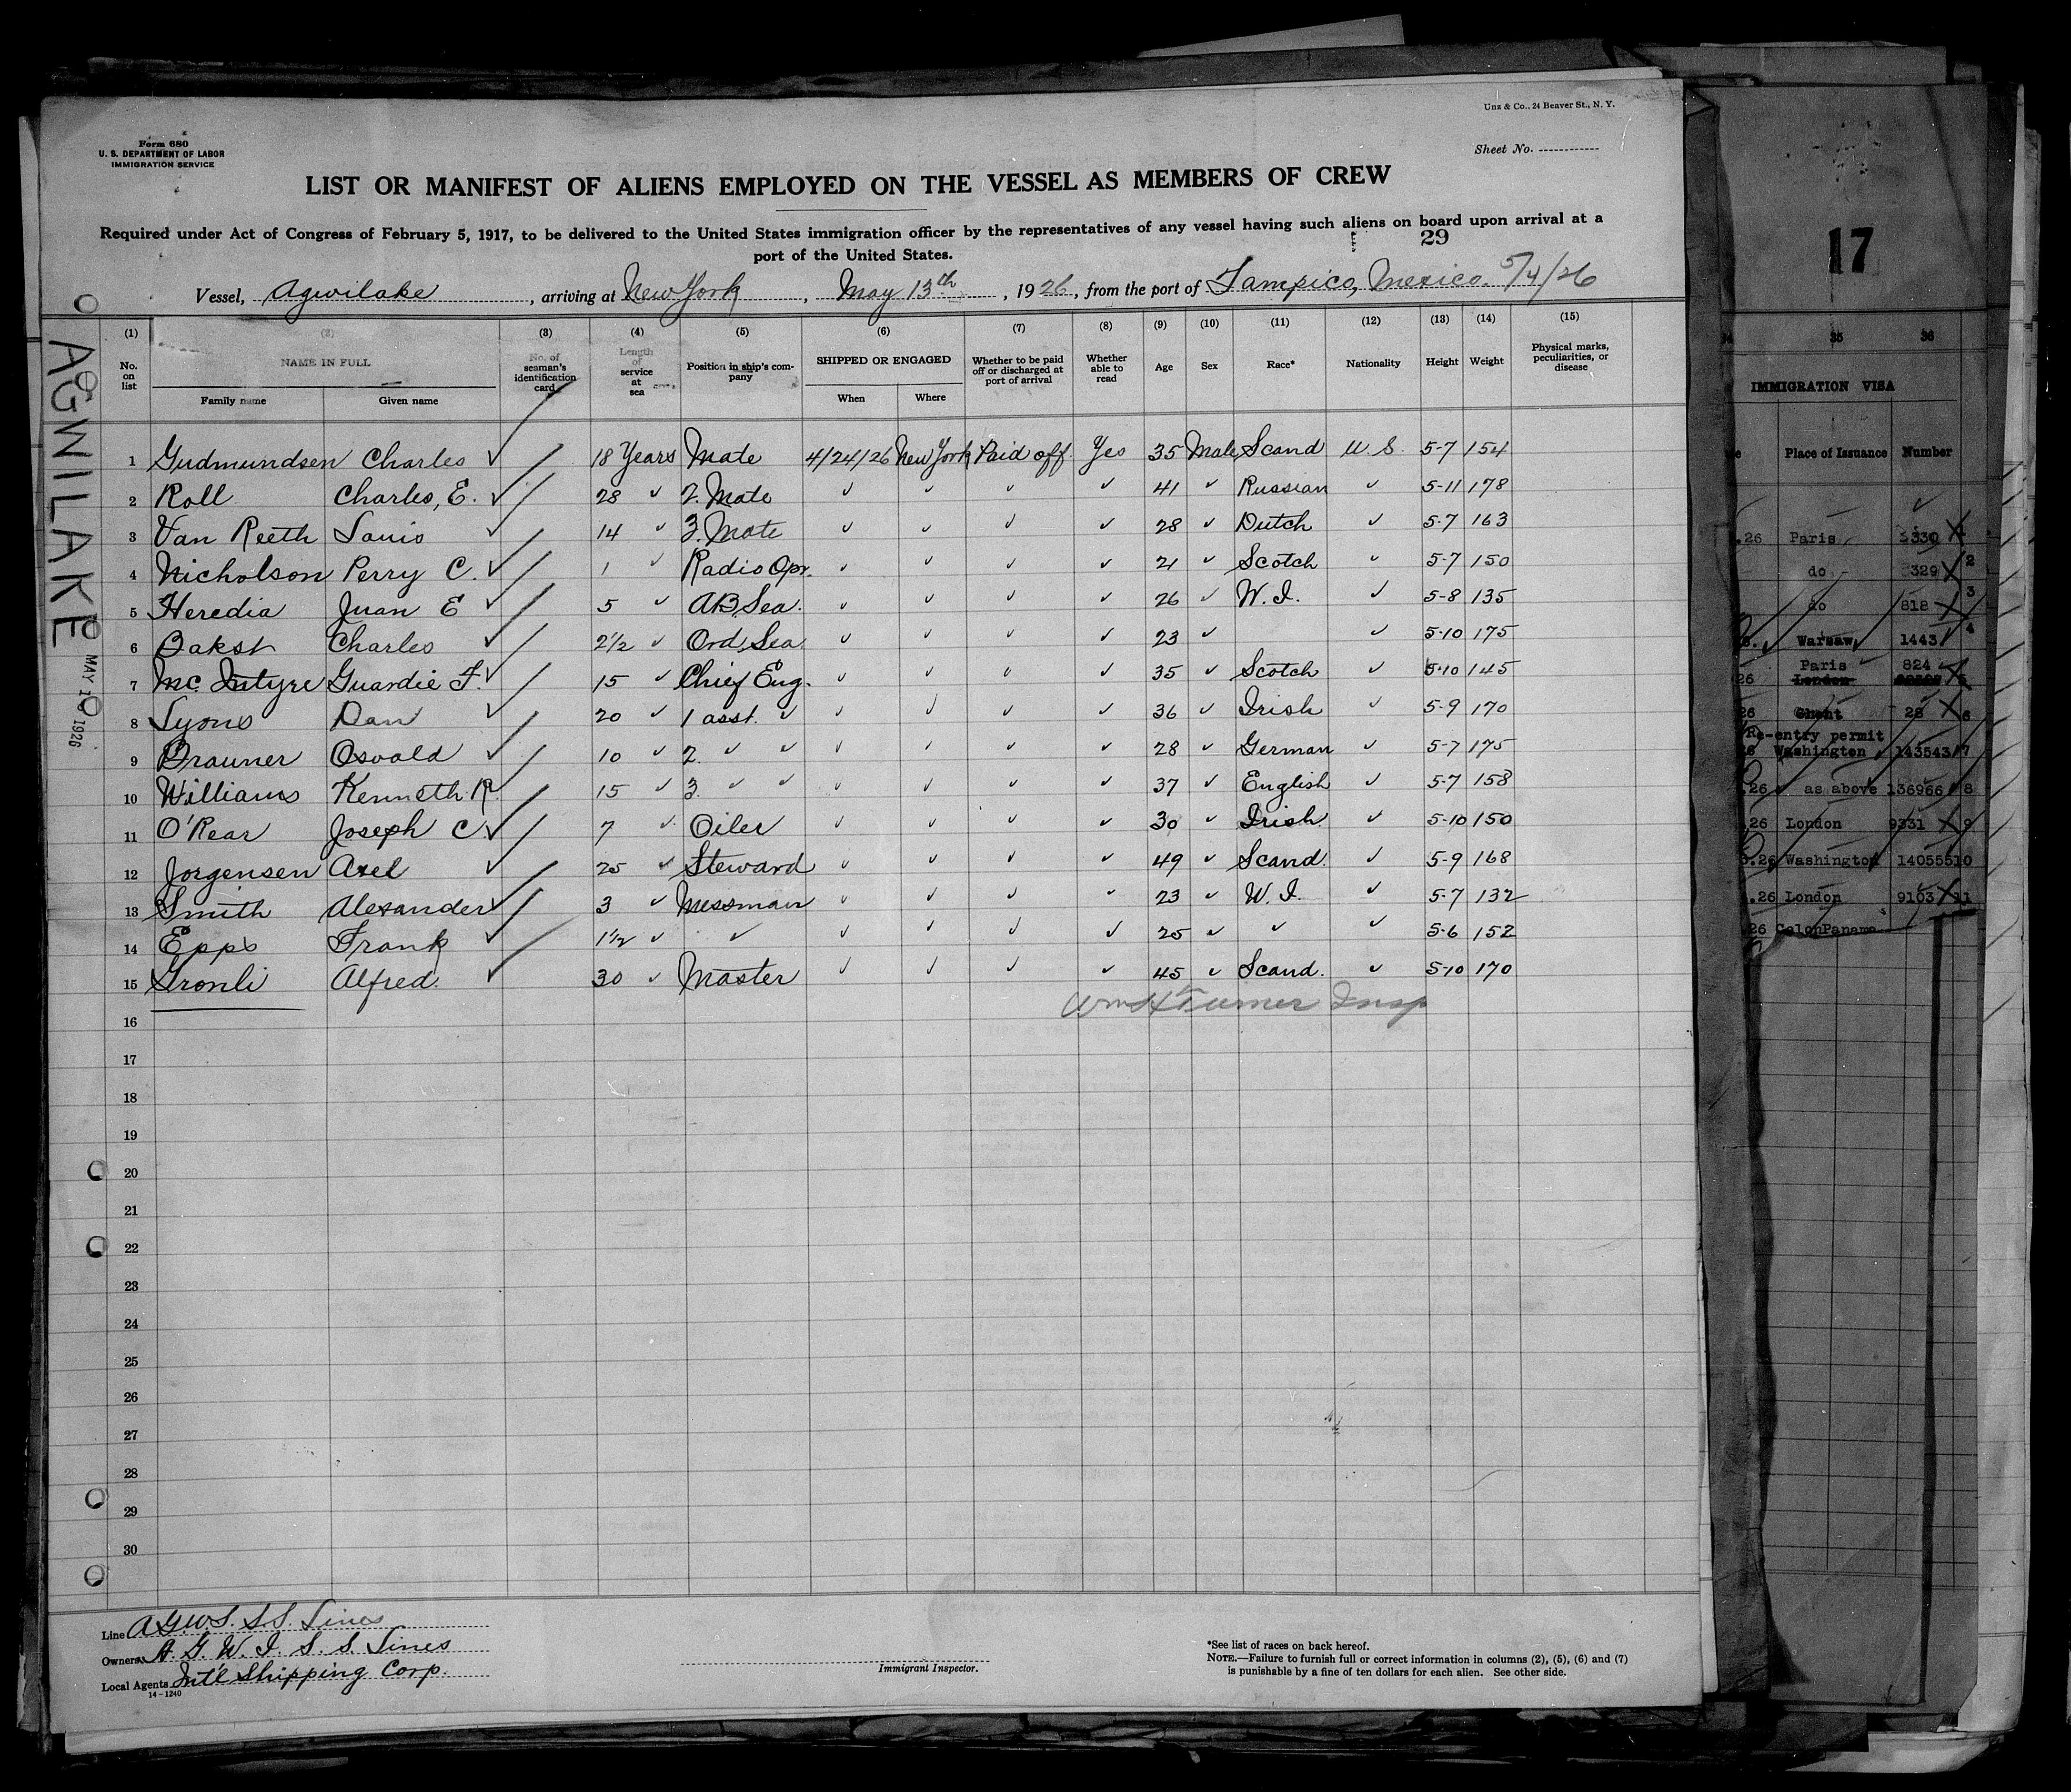 Unz & Co., 24 Beaver St., N. Y.
Form 680
U. S. DEPARTMENT OF LABOR
IMMIGRATION SERVICE
Sheet No.
LIST OR MANIFEST OF ALIENS EMPLOYED ON THE VESSEL AS MEMBERS OF CREW
Required under Act of Congress of February 5, 1917, to be delivered to the United States immigration officer by the representatives of any vessel having such aliens on board upon arrival at a
port of the United States.
29
Vessel, Agwilake, arriving at New York, May 13th, 1926, from the port of Tampico, Mexico. 5/4/26
AGWILAKE
MAY 1 1926
(1) (2) (3) (4) (5) (6) (7) (8) (9) (10) (11) (12) (13) (14) (15)
No. on list NAME IN FULL No. of seaman's identification card Length of service at sea Position in ship's company SHIPPED OR ENGAGED Whether to be paid off or discharged at port of arrival Whether able to read Age Sex Race* Nationality Height Weight Physical marks, peculiarities, or disease
Family name Given name When Where
1 Gudmundsen Charles ✓ 18 Years Mate 4/24/26 New York Paid off Yes 35 Male Scand U.S. 5-7 154
2 Roll Charles, E. ✓ 28 ✓ 2. Mate ✓ ✓ ✓ ✓ 41 ✓ Russian 5-11 178
3 Van Reeth Louis ✓ 14 ✓ 3. Mate ✓ ✓ ✓ ✓ 28 ✓ Dutch ✓ 5-7 163
4 Nicholson Perry C. ✓ 1 ✓ Radio Opr. ✓ ✓ ✓ ✓ 21 ✓ Scotch ✓ 5-7 150
5 Heredia Juan E ✓ 5 ✓ AB Sea. ✓ ✓ ✓ ✓ 26 ✓ W.I. ✓ 5-8 135
6 Charles ✓ 2½ ✓ Ord. Sea ✓ ✓ ✓ ✓ 23 ✓ ✓ 5-10 175
7 Mc Intyre Guardie F. ✓ 15 ✓ Chief Eng. ✓ ✓ ✓ ✓ 35 ✓ Scotch ✓ 5-10 145
8 Lyons Dan ✓ 20 ✓ 1 asst. ✓ ✓ ✓ ✓ ✓ 36 ✓ Irish ✓ 5-9 170
9 Brauner Osvald ✓ 10 ✓ 2. ✓ ✓ ✓ ✓ ✓ ✓ 28 ✓ German ✓ 5-7 175
10 Williams Kenneth R. 15 ✓ 3. ✓ ✓ ✓ ✓ ✓ ✓ 37 ✓ English ✓ 5-7 158
11 O'Rear Joseph C ✓ 7 ✓ Oiler ✓ ✓ ✓ ✓ 30 ✓ Irish ✓ 5-10 150
12 Jorgensen Axel ✓ 25 ✓ Steward ✓ ✓ ✓ ✓ 49 ✓ Scand. ✓ 5-9 168
13 Smith Alexander ✓ 3 ✓ Messman ✓ ✓ ✓ ✓ 23 ✓ W.I. ✓ 5-7 132
14 Epps Frank ✓ 1½ ✓ ✓ ✓ ✓ ✓ ✓ 25 ✓ ✓ ✓ 5-6 152
15 Gronli Alfred. ✓ 30 ✓ Master ✓ ✓ ✓ ✓ 45 ✓ Scand. ✓ 5-10 170
Wm H Turner Insp
16
17
18
19
20
21
22
23
24
25
26
27
28
29
30
Line A.G.W.I. S.S. Lines
Owners A. G. W. I. S. S. Lines
Local Agents Int'l Shipping Corp.
14-1240
Immigrant Inspector.
*See list of races on back hereof.
NOTE.—Failure to furnish full or correct information in columns (2), (5), (6) and (7)
is punishable by a fine of ten dollars for each alien. See other side.
17
35 36
IMMIGRATION VISA
Place of Issuance Number
.26 Paris 3330 1
do 329 2
do 818 3
Warsaw 1443 4
Paris 824
26 London 5
26 Ghent 28 6
Re-entry permit
26 Washington 143543 7
.26 as above 136966 8
.26 London 9331 9
.26 Washington 140555 10
.26 London 9103 11
26 Colon Panama